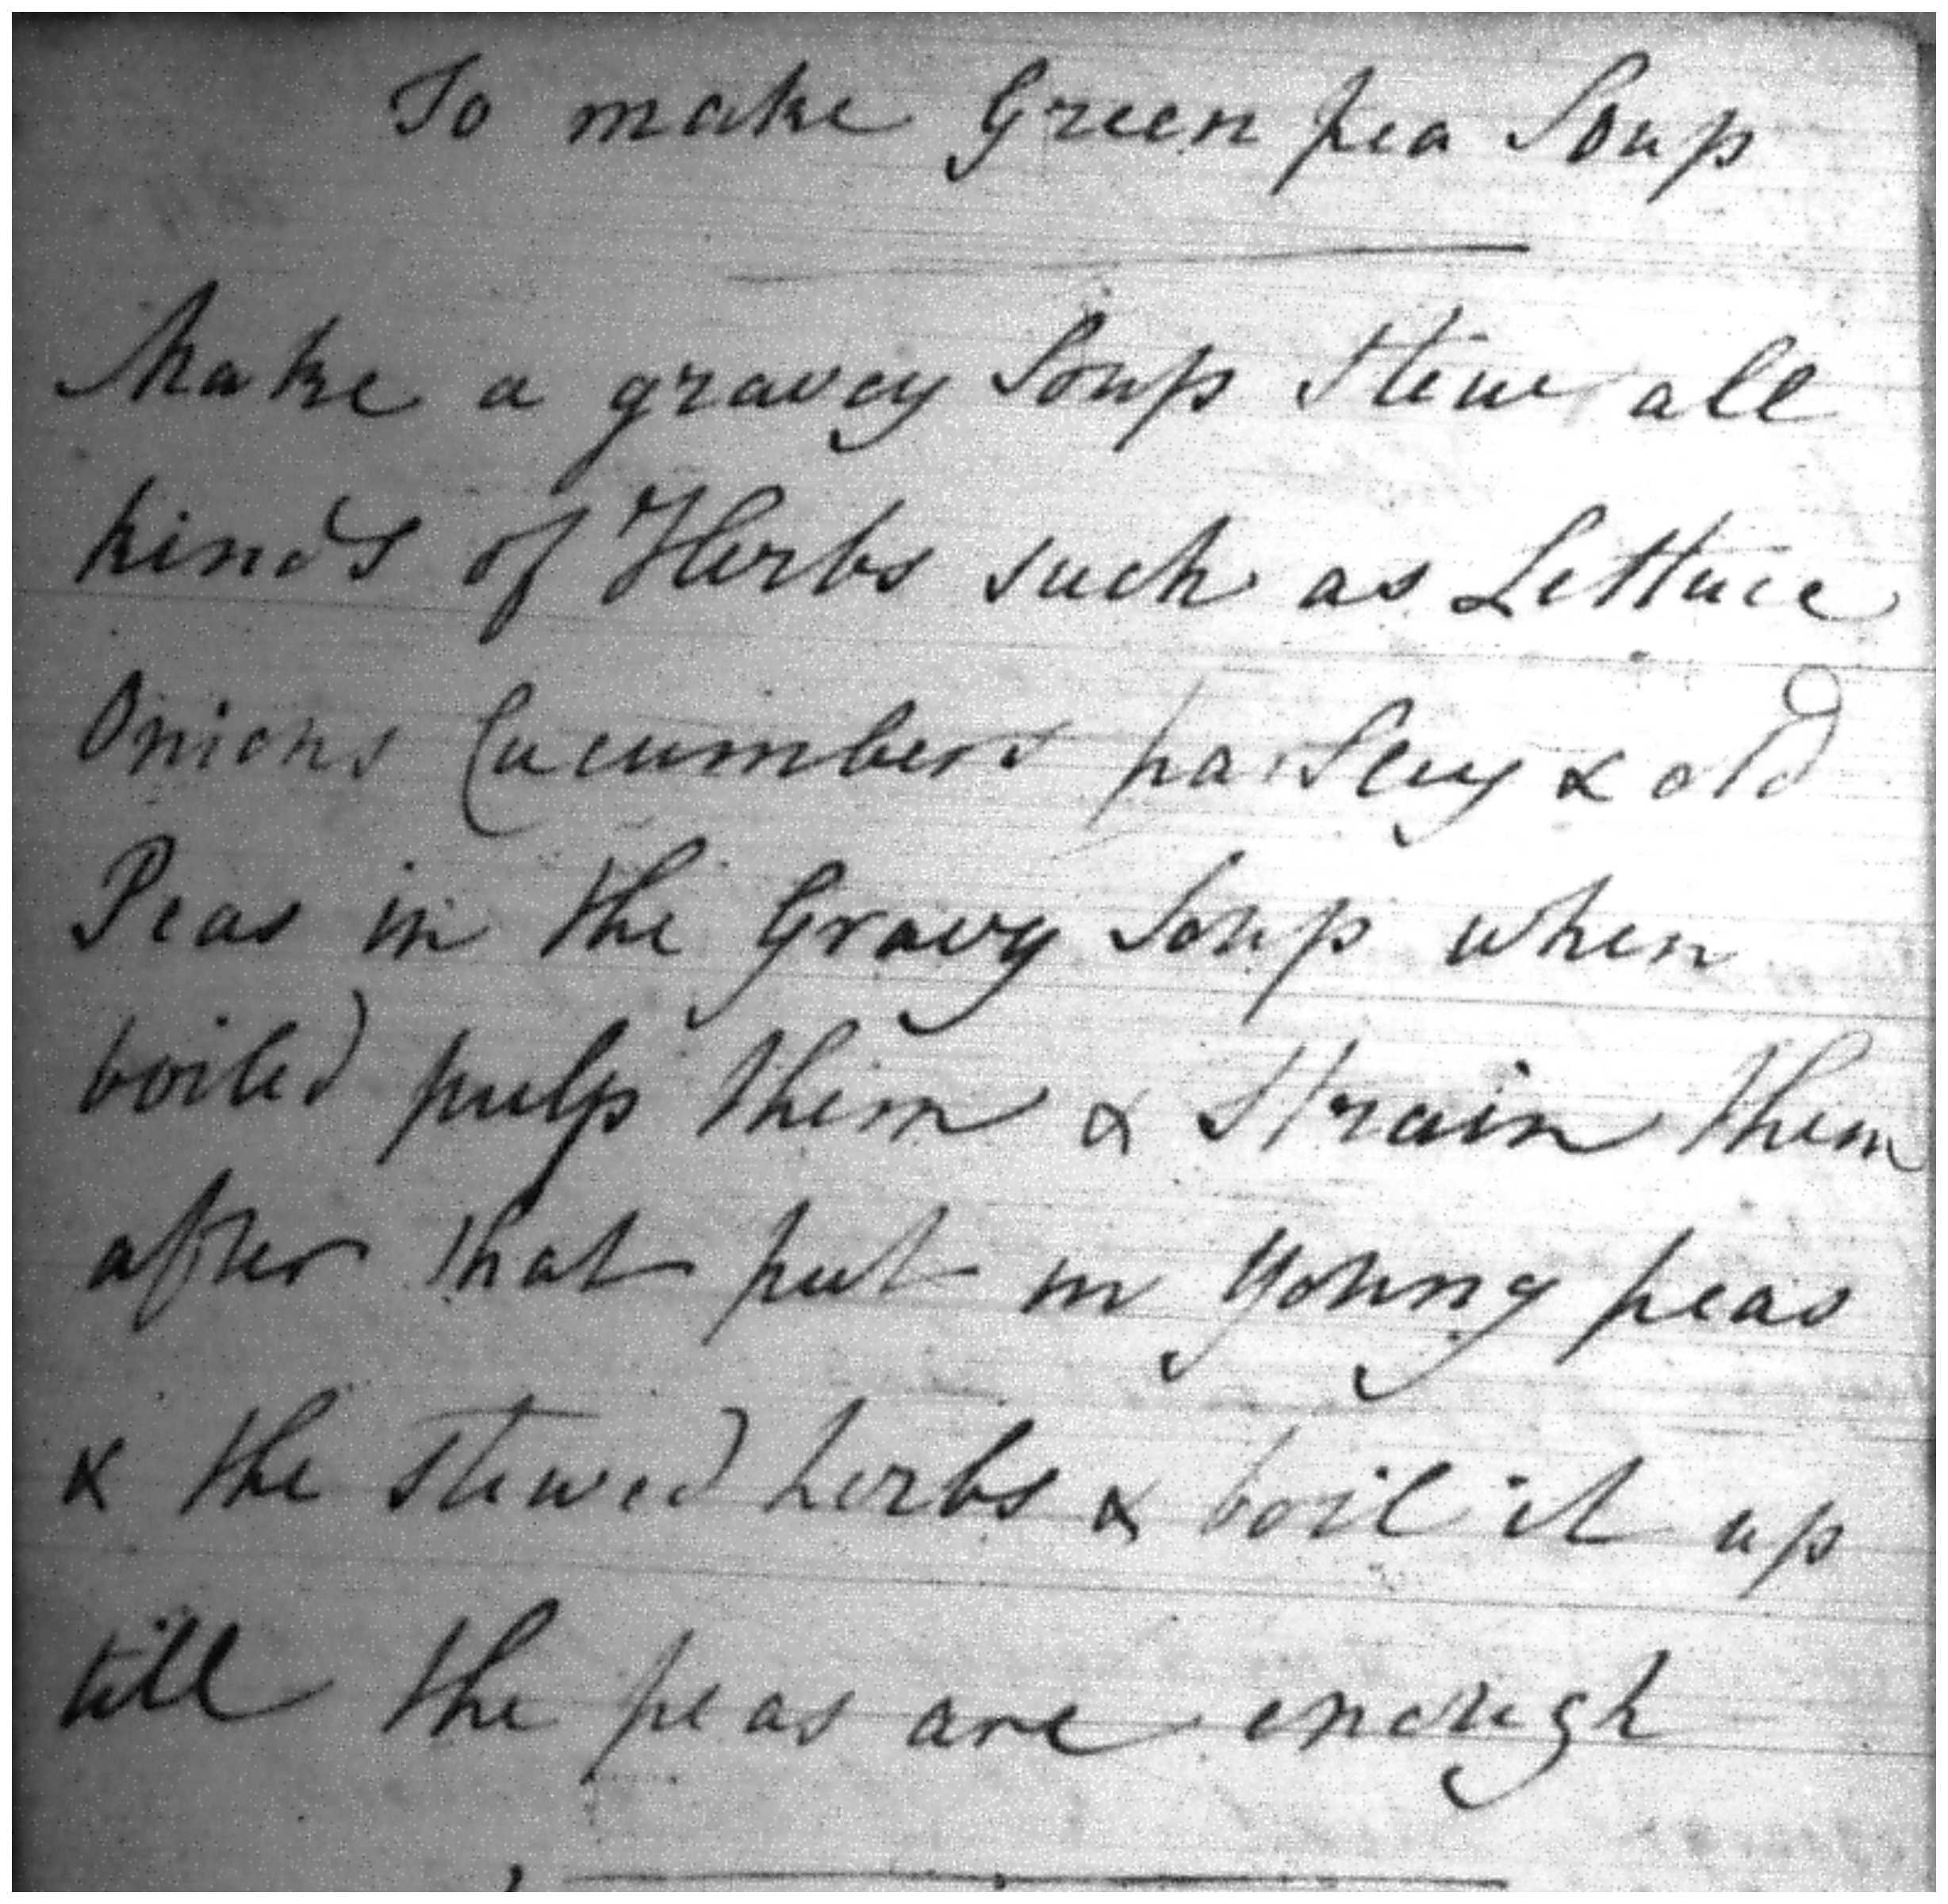 To make Green pea Soup
Make a gravey Soup Stew all
kinds of Herbs such as Lettuce
Onions Cucumbers parsley & old
Peas in the Gravy Soup when
boiled pulp them & Strain them
after that put in Young peas
& the stewed herbs & boil it up
till the peas are enough